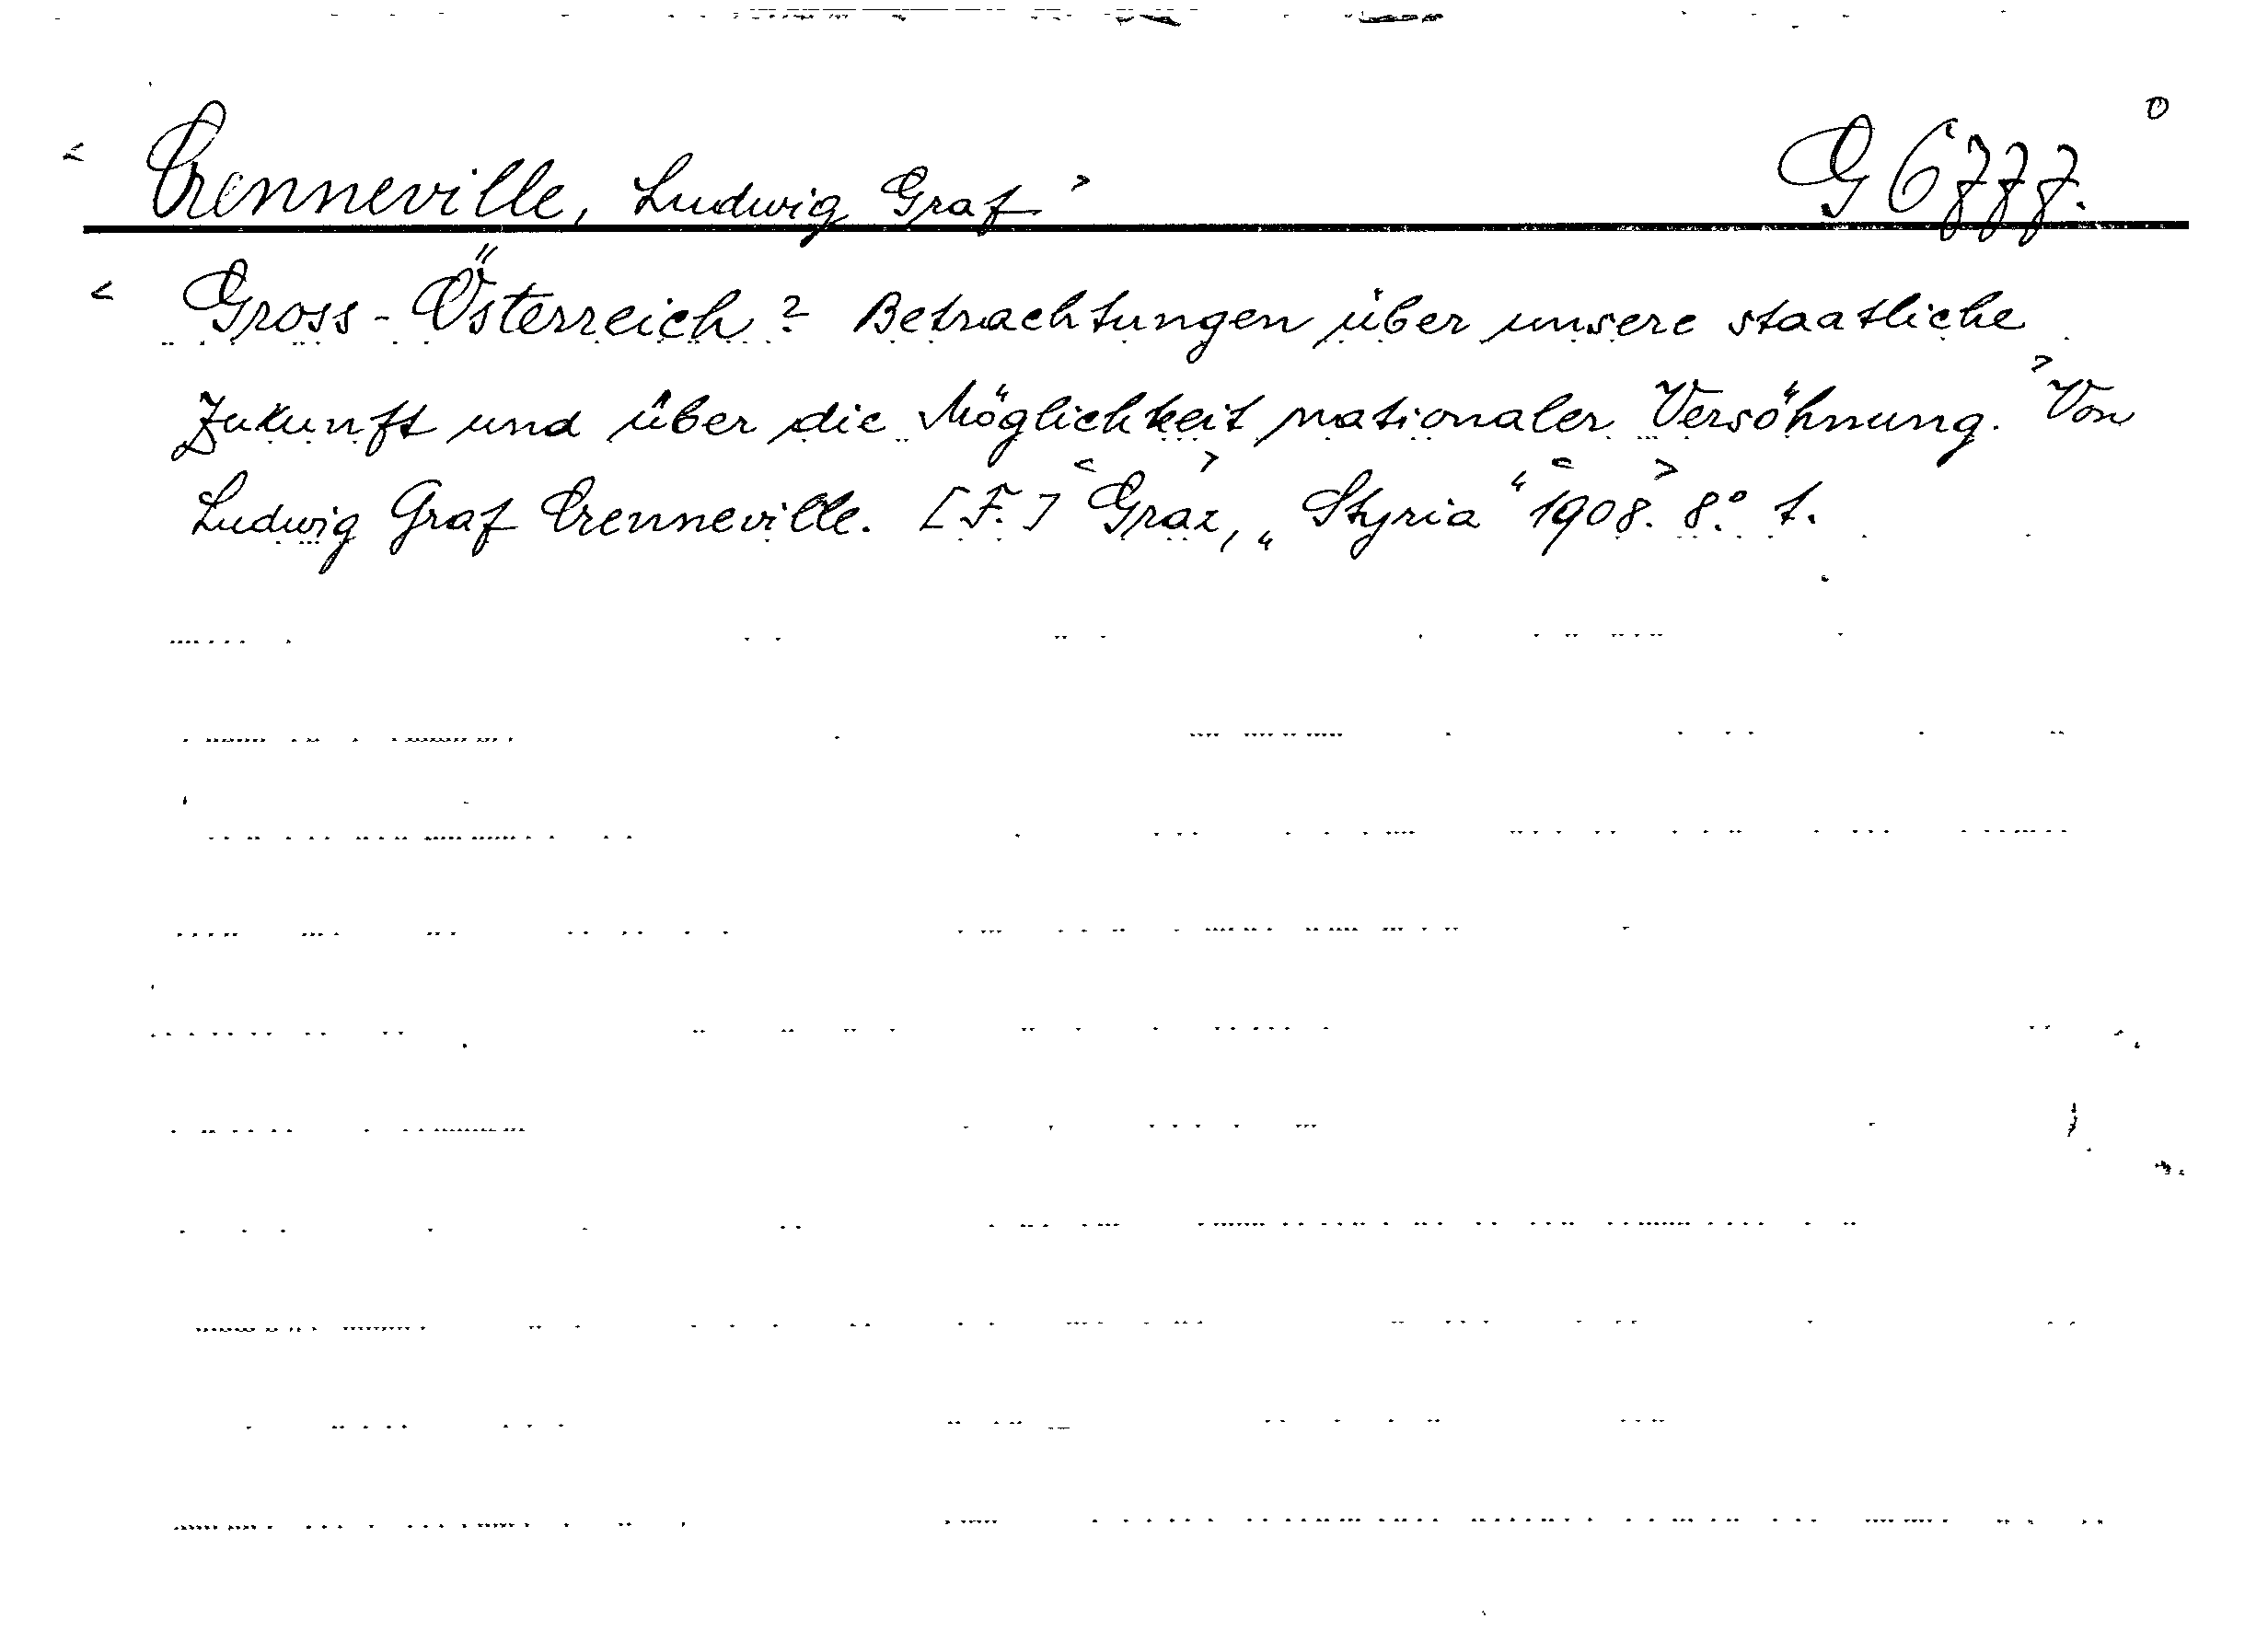 < Crenneville, Ludwig Graf > G 6777. 0
< Gross-Österreich? Betrachtungen über unsere staatliche
Zukunft und über die Möglichkeit nationaler Versöhnung. > Von
Ludwig Graf Crenneville. [F.] <Graz>, „Styria“ <1908.> 8.° 1.